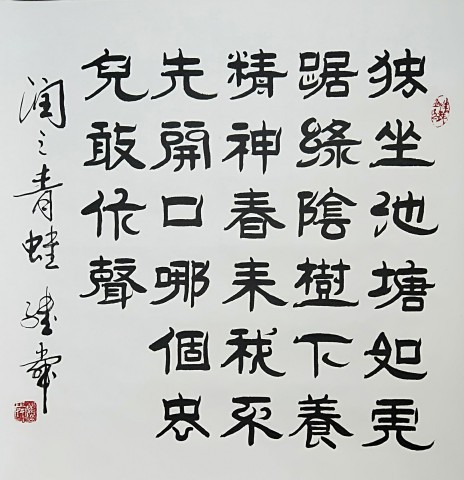 独坐池塘如虎
踞綠陰樹下養
精神春来我不
先開口哪個虫
兒敢作聲
润之青蛙